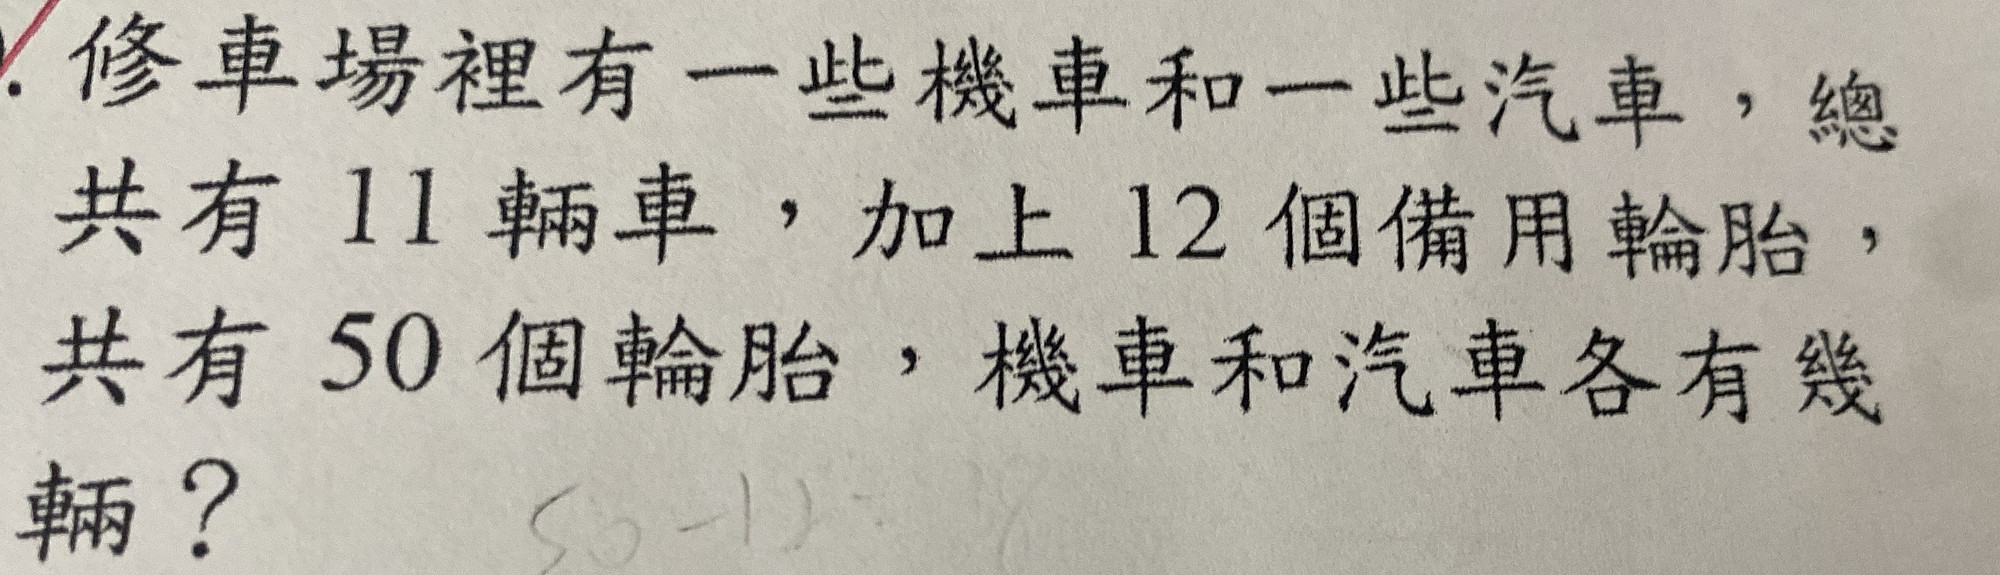 修車場裡有一些機車和一些汽車,總
共有 11 輛車,加上 12 個備用輪胎,
共有 50 個輪胎,機車和汽車各有幾
輛?
50-12=